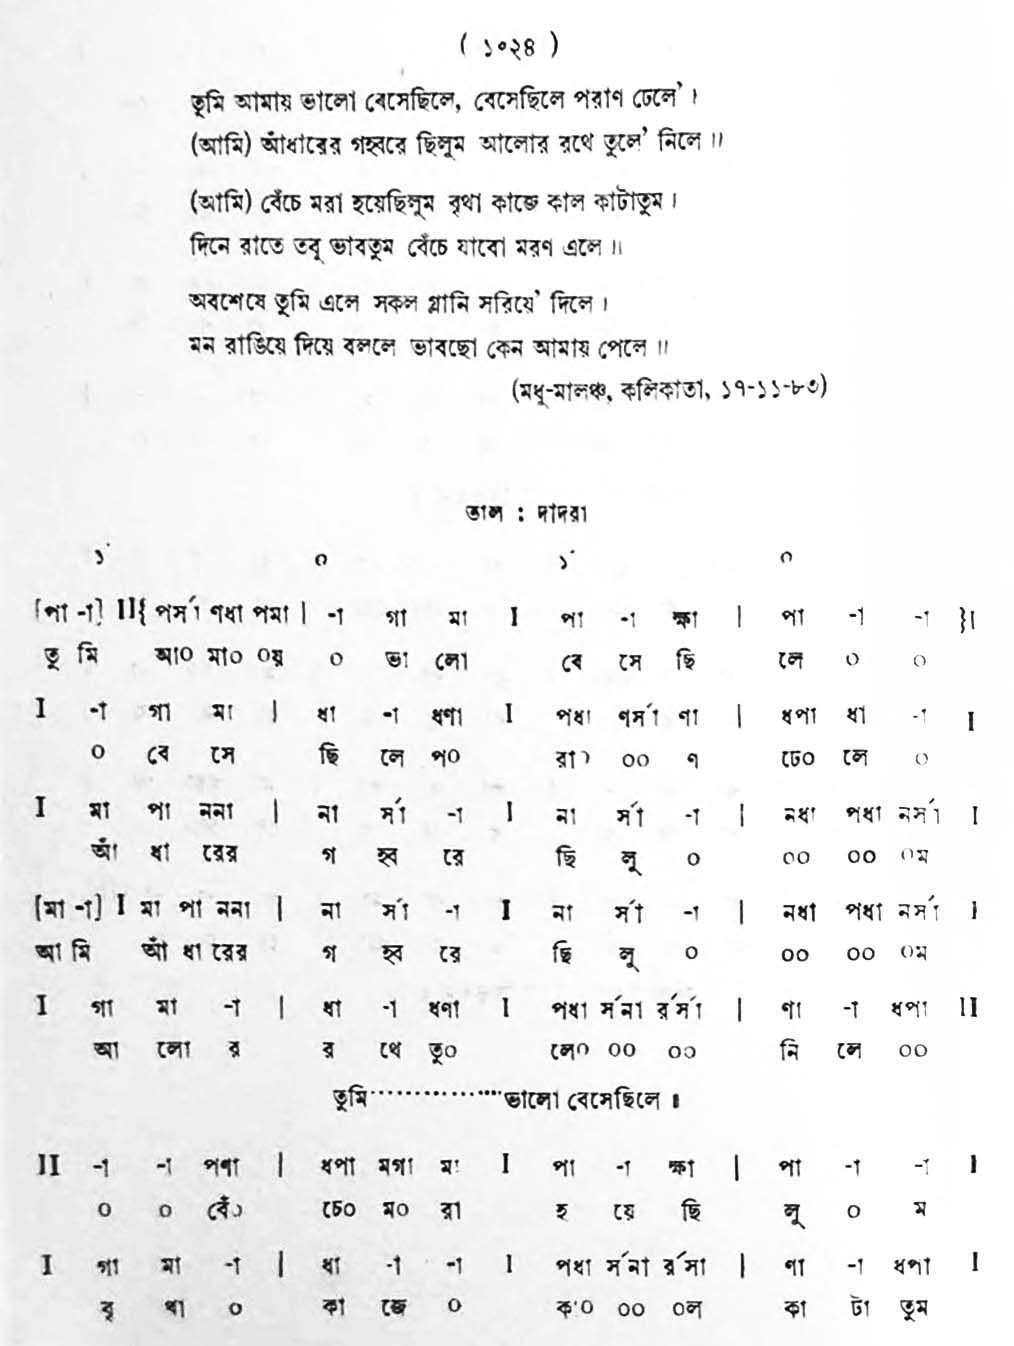 ( ১০২৪ )
তুমি আমায় ভালো বেসেছিলে, বেসেছিলে পরাণ ঢেলে' ।
(আমি) আঁধারের গহ্বরে ছিলুম আলোর রথে তুলে' নিলে ॥
(আমি) বেঁচে মরা হয়েছিলুম বৃথা কাজে কাল কাটাতুম ।
দিনে রাতে তবু ভাবতুম বেঁচে যাবো মরণ এলে ॥
অবশেষে তুমি এলে সকল গ্লানি সরিয়ে' দিলে ।
মন রাঙিয়ে দিয়ে বললে ভাবছো কেন আমায় পেলে ॥
(মধু-মালঞ্চ, কলিকাতা, ১৭-১১-৮৩)
তাল : দাদরা
১́ ০ ১́ ০
[পা -া] II{ পর্সা ণধা পমা | -া গা মা I পা -া ক্ষা | পা -া -া }I
তু মি আ০ মা০ ০য় ০ ভা লো বে সে ছি লে ০ ০
I -া গা মা | ধা -া ধণা I পধা ণর্সা ণা | ধপা ধা -া I
০ বে সে ছি লে প০ রা০ ০০ ণ ঢে০ লে ০
I মা পা ননা | না র্সা -া I না র্সা -া | নধা পধা নর্সা I
আঁ ধা রের গ হ্ব রে ছি লু ০ ০০ ০০ ০ম
[মা -া] I মা পা ননা | না র্সা -া I না র্সা -া | নধা পধা নর্সা I
আ মি আঁ ধা রের গ হ্ব রে ছি লু ০ ০০ ০০ ০ম
I গা মা -া | ধা -া ধণা I পধা র্সনা র্রর্সা | ণা -া ধপা II
আ লো র র থে তু০ লে০ ০০ ০০ নি লে ০০
তুমি···············ভালো বেসেছিলে ॥
II -া -া পণা | ধপা মগা মা I পা -া ক্ষা | পা -া -া I
০ ০ বেঁ০ চে০ ম০ রা হ য়ে ছি লু ০ ম
I গা মা -া | ধা -া -া I পধা র্সনা র্রসা | ণা -া ধপা I
বৃ থা ০ কা জে ০ কা০ ০০ ০ল কা টা তুম